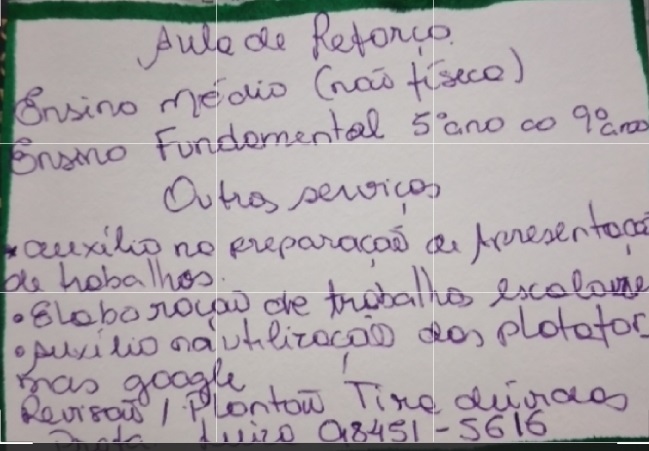 Aula de Reforço.
Ensino médio (não física)
Ensino Fundamental 5º ano ao 9º ano
Outros serviços
• auxílio na preparação de Apresentação
de trabalhos.
• Elaboração de trabalhos escolares
• Auxílio na utilização das platafor_
mas google
Revisão / Plantão Tira dúvidas
Luiza 98451-5616